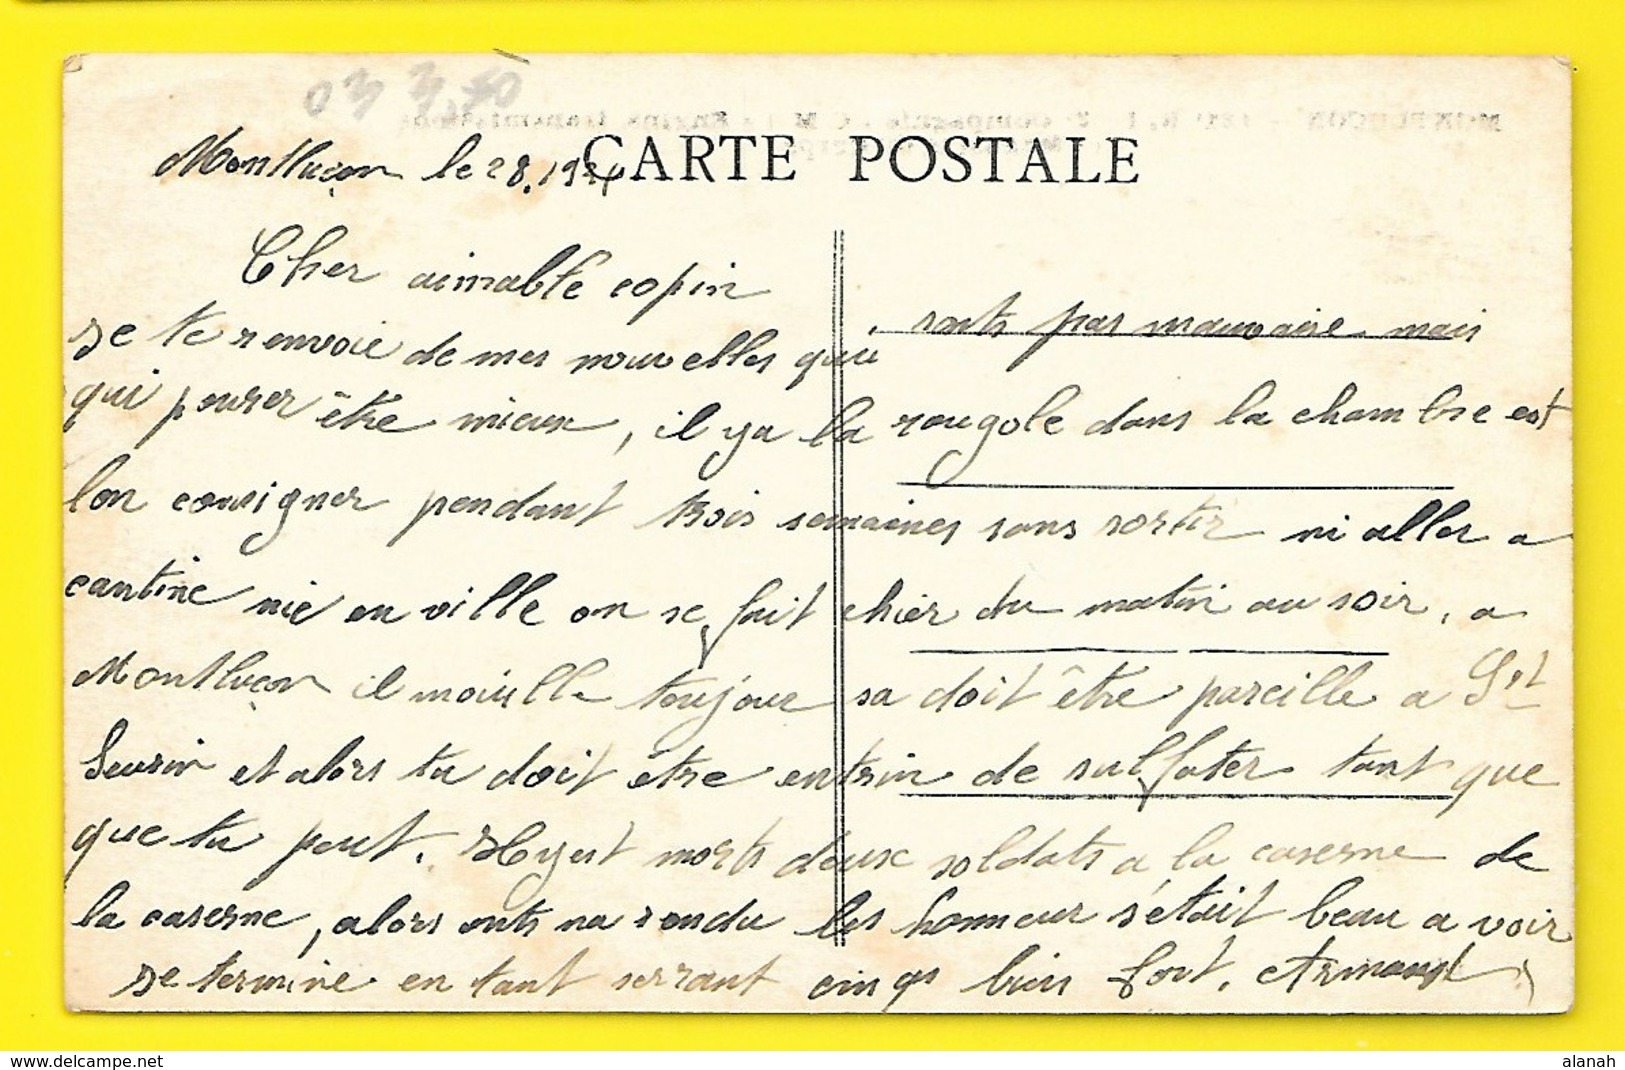 03 370
CARTE POSTALE
Montluçon le 28.1924
Cher aimable copin
Je te renvoie de mes nouvelles que sonts pas mauvaise mais
qui pourer être mieux, il ya la rougole dans la chambre est
lon consigner pendant trois semaines sans sortir ni aller a
cantine nie en ville on se fait chier du matin au soir, a
Montluçon il mouille toujour sa doit être pareille a St
Seurin et alors tu doit être entrin de sulfater tant que
que tu peut. Il yest morts deux soldats a la caserne de
la caserne, alors onts na rendu les honneur s'était beau a voir
Je termine en tant serrant cinqs bien fort. Armand
alanah / Delcampe.net